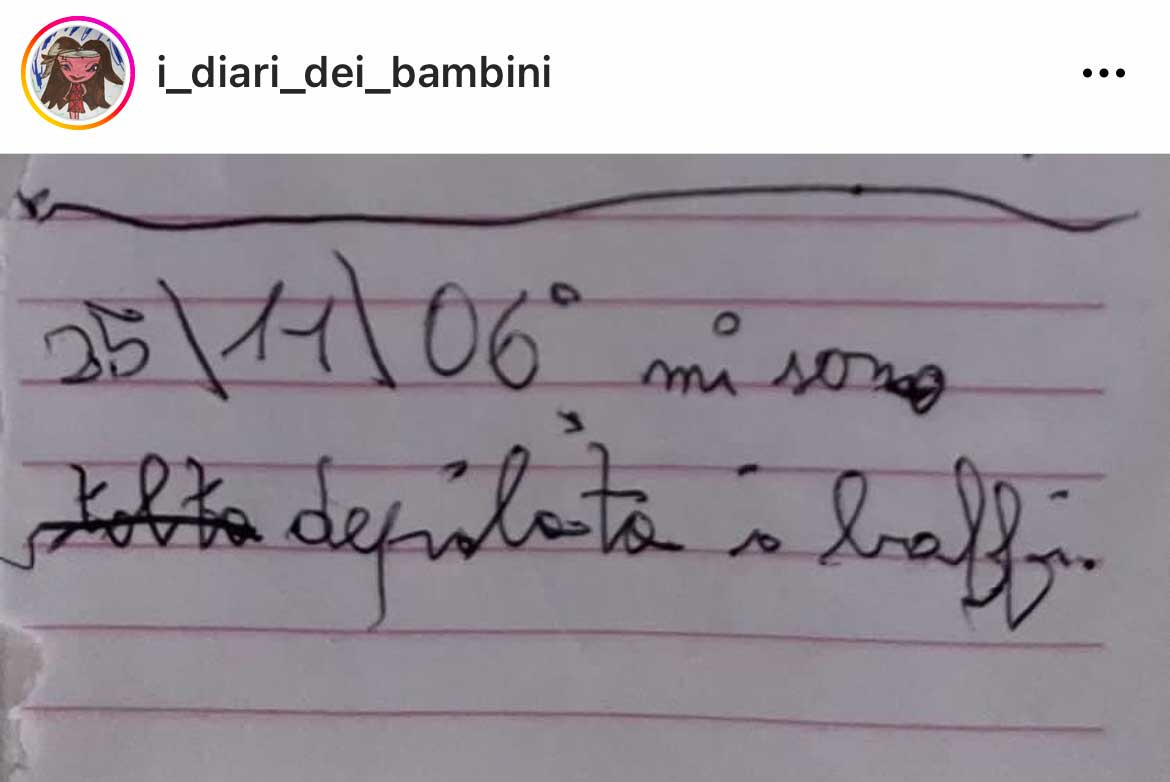 i_diari_dei_bambini
25\11\06° mi sono
tolta depilata i baffi.